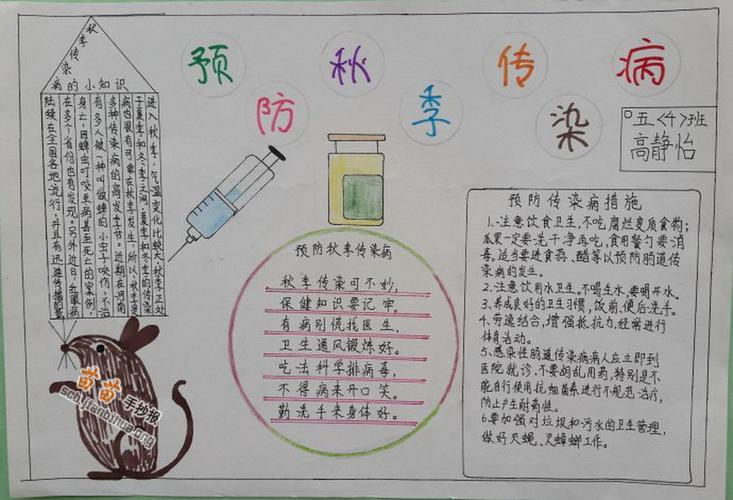 预防秋季传染病
秋季传染
病的小知识
进入秋季,气温变化比较大,秋季正处
于夏季和冬季之间,夏季和冬季的传染
病均很有可能在秋季发生,所以,秋季是
多种传染病的高发季节。近期在河南
有多人被一种叫做蜱的小虫子咬伤,不治
身亡,因蜱虫叮咬至病甚至死亡的案例,
在多个省份也有发现。另外近日,红眼病
陆续在全国各地流行,并且有迅速传播的
五<4>班
高静怡
预防秋季传染病
秋季传染可不妙,
保健知识要记牢。
有病别慌找医生,
卫生通风锻炼好。
吃法科学排病毒,
不得病来开口笑。
勤洗手来身体好。
预防传染病措施
1、注意饮食卫生,不吃腐烂变质食物;
瓜果一定要洗干净再吃,食用餐勺要消
毒。适当要进食蒜、醋等以预防肠道传
染病的发生。
2、注意饮用水卫生,不喝生水,要喝开水。
3、养成良好的卫生习惯,饭前、便后洗手。
4、劳逸结合,增强抵抗力,经常进行
体育活动。
5、感染性肠道传染病病人应立即到
医院就诊,不要胡乱用药,特别是不
能自行使用抗细菌素进行不规范治疗,
防止产生耐药性。
6要加强对垃圾和污水的卫生管理,
做好灭蝇、灭蟑螂工作。
苗苗手抄报